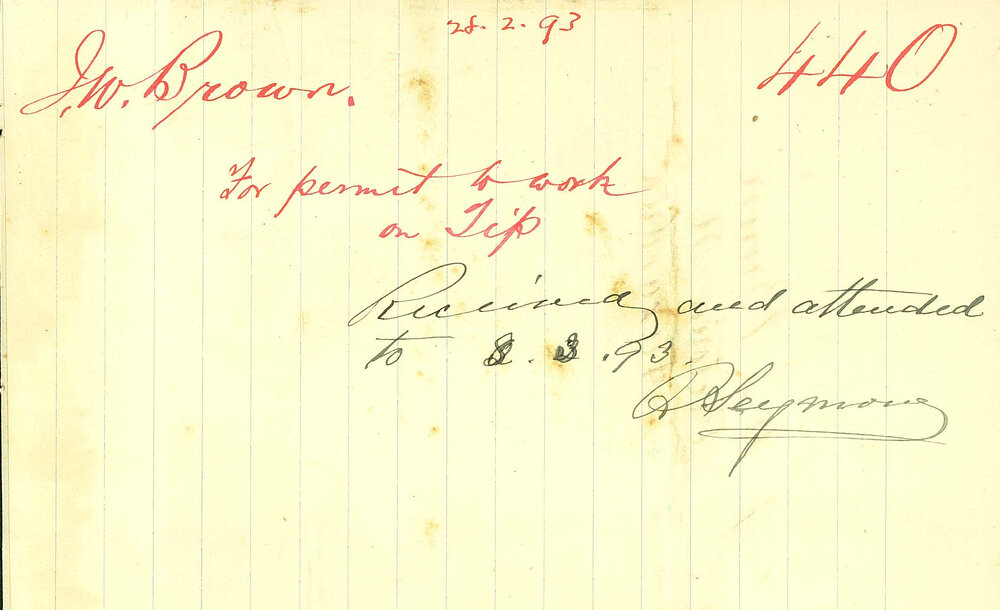 28.2.93
J.W. Brown.
440
For permit to work
on Tip
Received and attended
to 8.3.93.
R Seymour